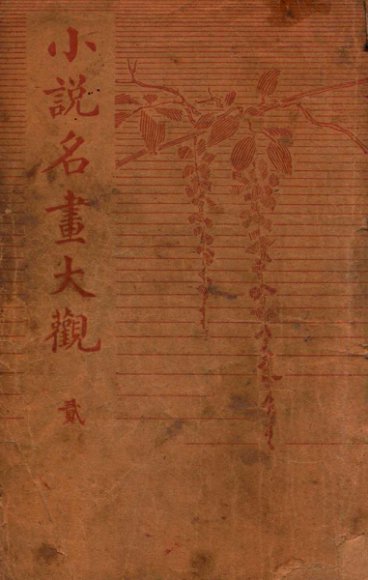 小説名畫大觀
貳